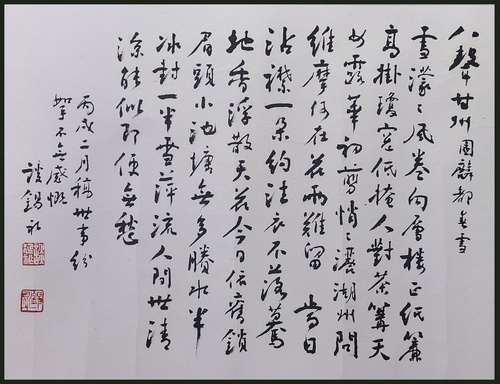 八聲甘州 圖麟都春雪
雪濛〻風卷向層樓正紙簾
高掛瓊窗低掩人對茶篝天
如露華初剪悄〻灑湖州問
維摩何在花雨難留 當日
沾襟一朵約法衣不落驀
地香浮散天花今日依舊鎖
眉頭小池塘無多勝水半
冰封一半雪萍流人間世清
涼能似即便無愁
丙戌二月稿世事紛
拏不無感慨
談錫永